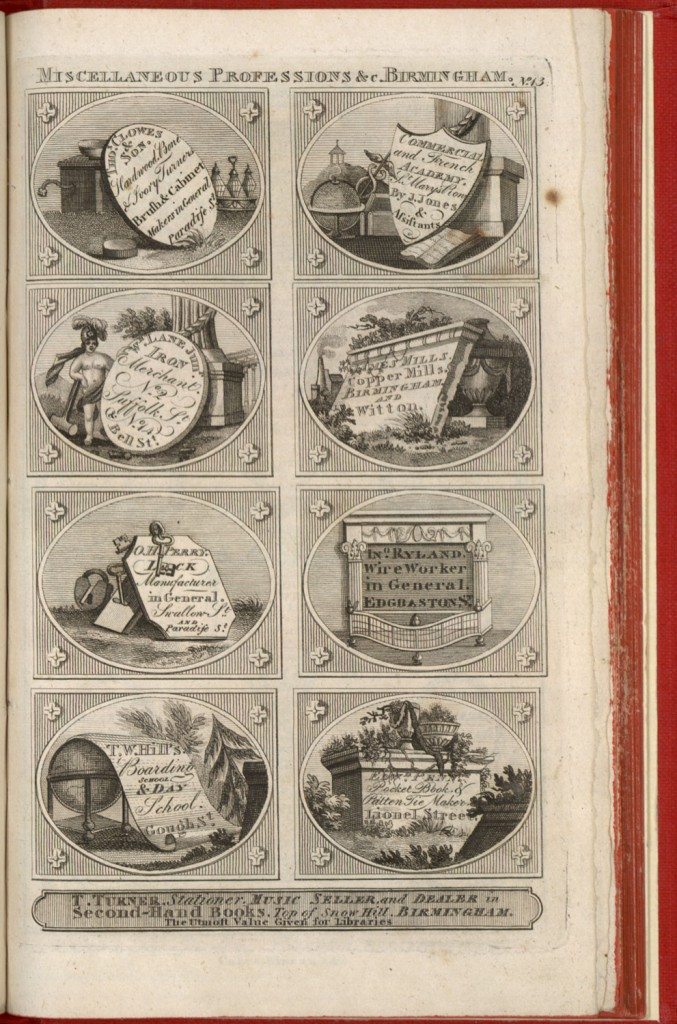 MISCELLANEOUS PROFESSIONS &c. BIRMINGHAM. No. 13.
THOs. CLOWES
& SON.
Hardwood, Bone
& Ivory Turners
Brush & Cabinet
Makers in General
Paradiſe St.
COMMERCIAL
and French
ACADEMY.
St. Mary's Row
By J. Jones
&
Aſsiſtants
Wm. LANE, Junr.
IRON
Merchant
No. 2
Suffolk St.
& No. 4
Bell St.
MILLS,
Copper Mills,
BIRMINGHAM,
AND
Witton.
O. H. PERRY.
LOCK
Manufacturer
in General.
Swallow St.
AND
Paradiſe St.
Jno. RYLAND.
Wire Worker
in General.
EDGBASTON St.
T. W. Hill's
Boarding
SCHOOL
& DAY
School.
Gough St.
EDWd. PENN.
Pocket Book &
Patten Tie Maker
Lionel Street
T. TURNER, Stationer, MUSIC SELLER, and DEALER in
Second-Hand BOOKS, Top of Snow Hill, BIRMINGHAM.
The Utmoſt Value Given for Libraries